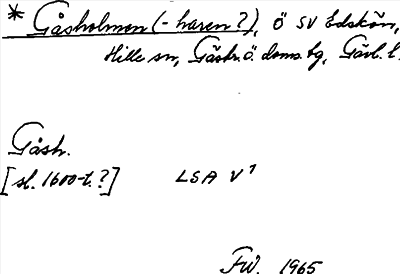 * Gåsholmen (-haren?), Ö SV Edskön,
Hille sn, Gästr. ö. doms. tg, Gävl. l.
Gåsh.
[sl. 1600-t.?] LSA V¹
FW. 1965